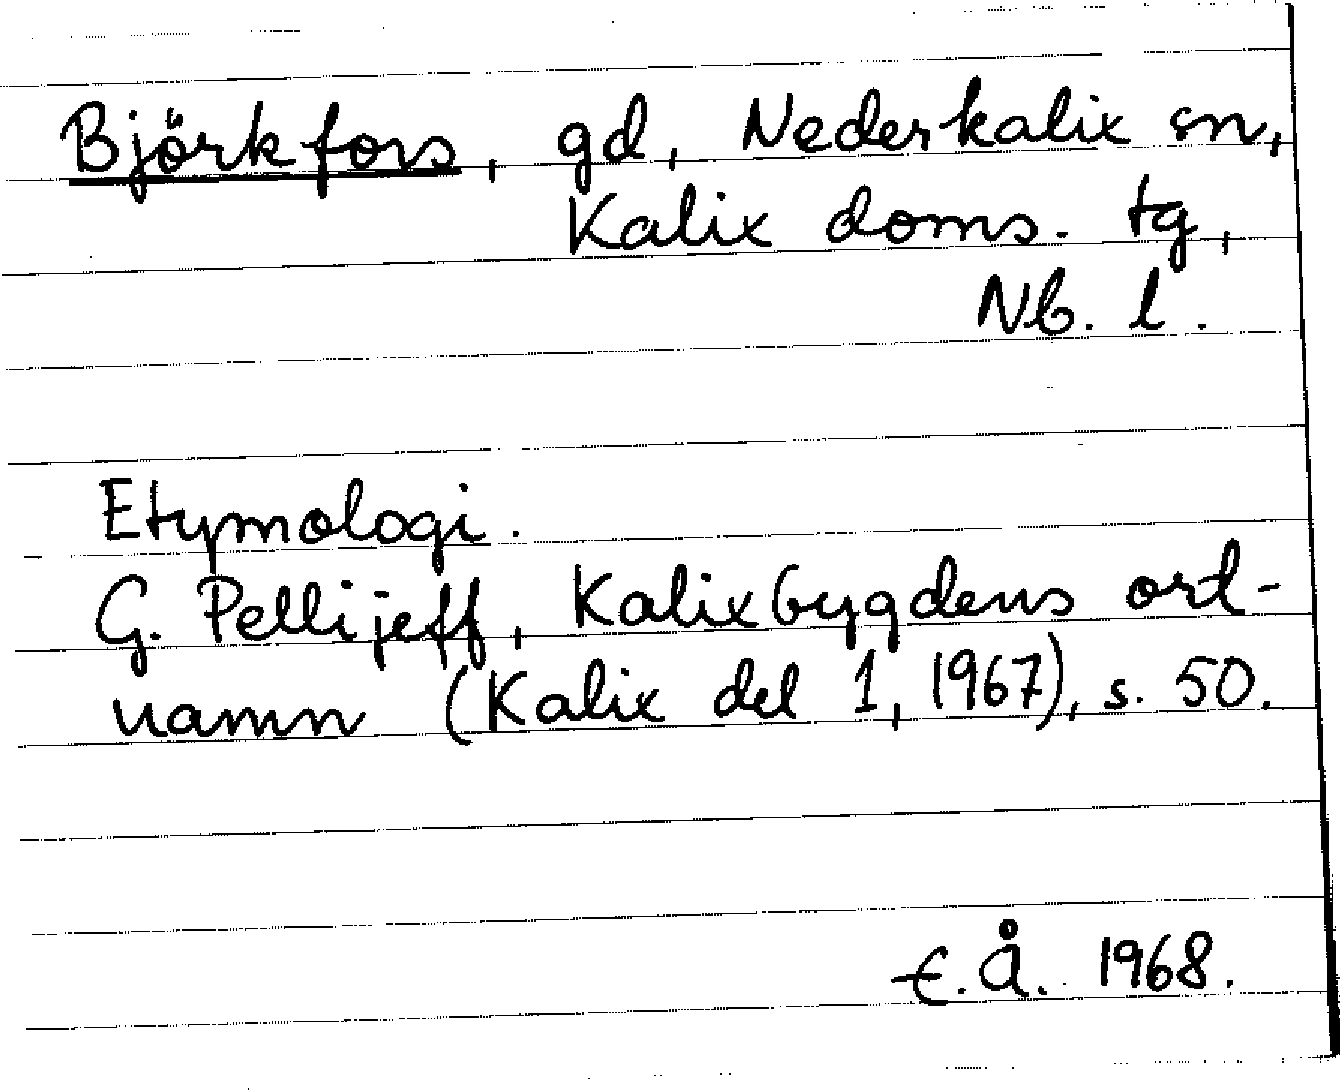 Björkfors, gd, Nederkalix sn,
Kalix doms. tg,
Nb. l.
Etymologi.
G. Pellijeff, Kalixbygdens ort-
namn (Kalix del 1, 1967), s. 50.
E.Å. 1968.